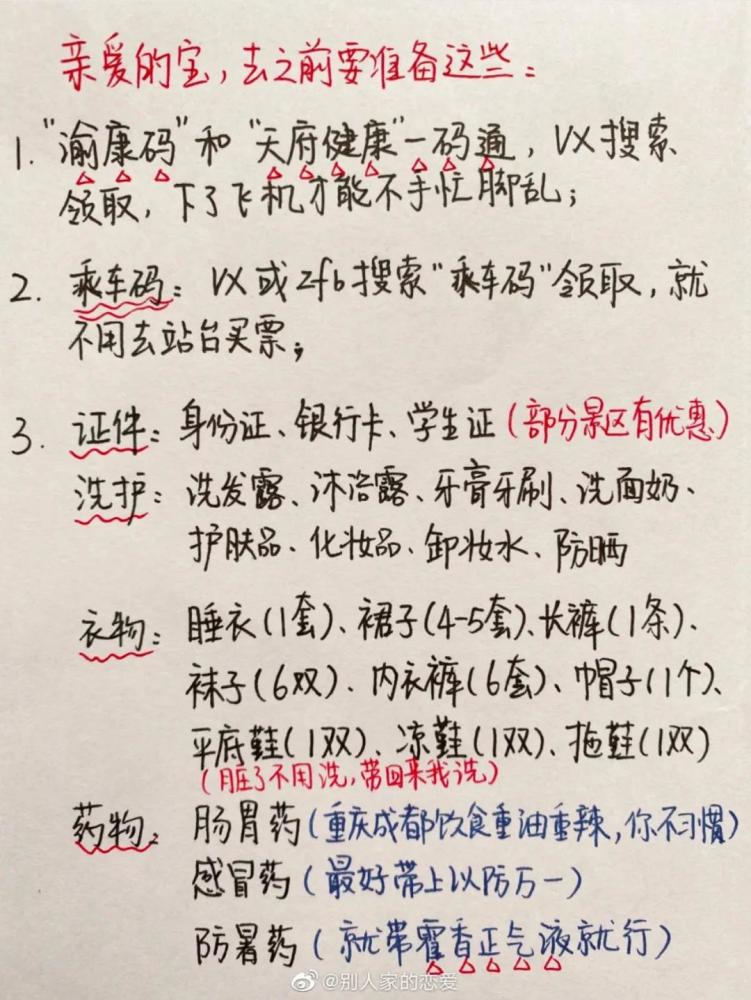 亲爱的宝,去之前要准备这些:
1. "渝康码"和"天府健康"一码通,VX搜索
领取,下了飞机才能不手忙脚乱;
2. 乘车码:VX或zfb搜索"乘车码"领取,就
不用去站台买票;
3. 证件:身份证、银行卡、学生证(部分景区有优惠)
洗护:洗发露、沐浴露、牙膏牙刷、洗面奶、
护肤品、化妆品、卸妆水、防晒
衣物:睡衣(1套)、裙子(4-5套)、长裤(1条)、
袜子(6双)、内衣裤(6套)、帽子(1个)、
平底鞋(1双)、凉鞋(1双)、拖鞋(1双)
(脏了不用洗,带回来我洗)
药物:肠胃药(重庆成都饮食重油重辣,你不习惯)
感冒药(最好带上以防万一)
防暑药(就带霍香正气液就行)
@别人家的恋爱